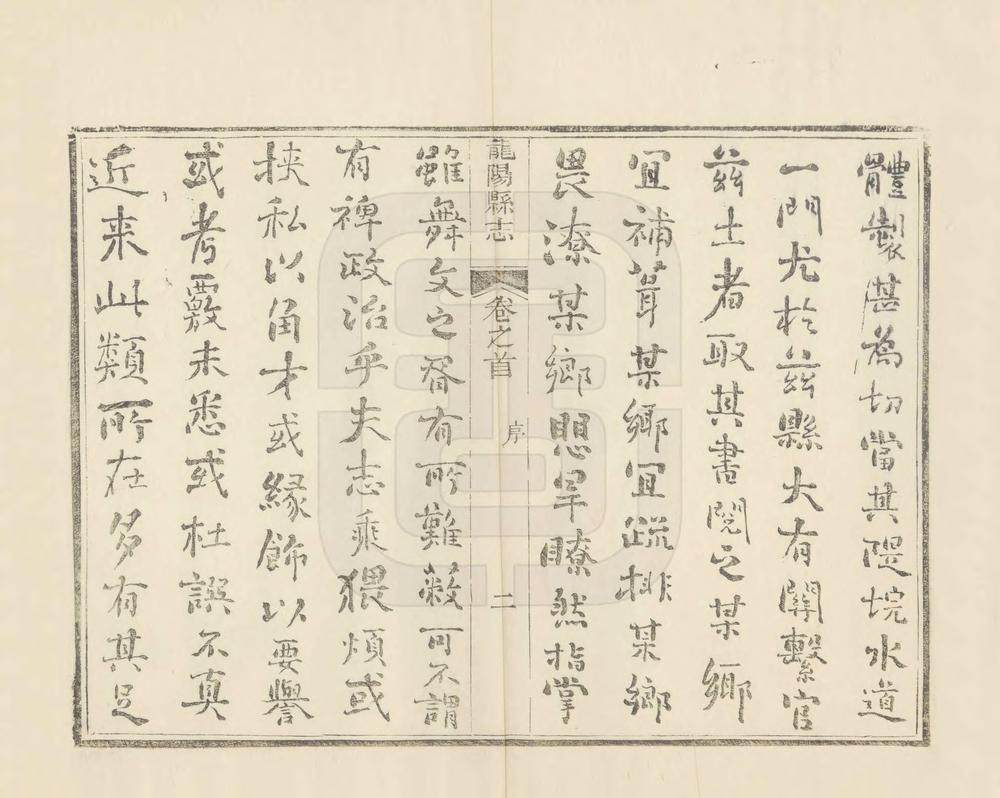 體製甚為切當其隄垸水道
一門尤於茲縣大有關繫官
茲土者取其書閱之某鄉
宜補葺某鄉宜疏排某鄉
畏潦某鄉思旱瞭然指掌
龍陽縣志
卷之首
序
二
雖舞文之胥有所難蔽可不謂
有裨政治乎夫志乘猥煩或
挾私以角才或緣飾以要譽
或考覈未悉或杜譔不真
近来此類所在多有其足